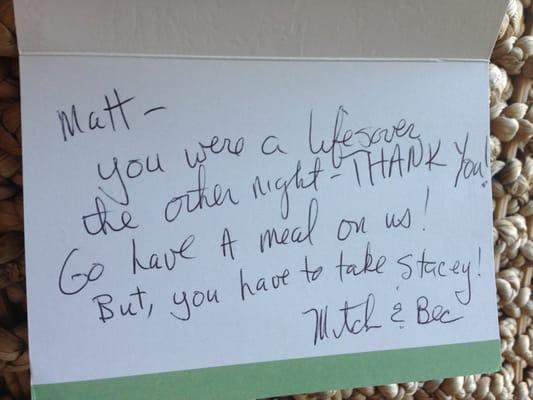 Matt -
you were a lifesaver
the other night - THANK YOU!
Go have A meal on us!
But, you have to take Stacey!
Mitch & Bec